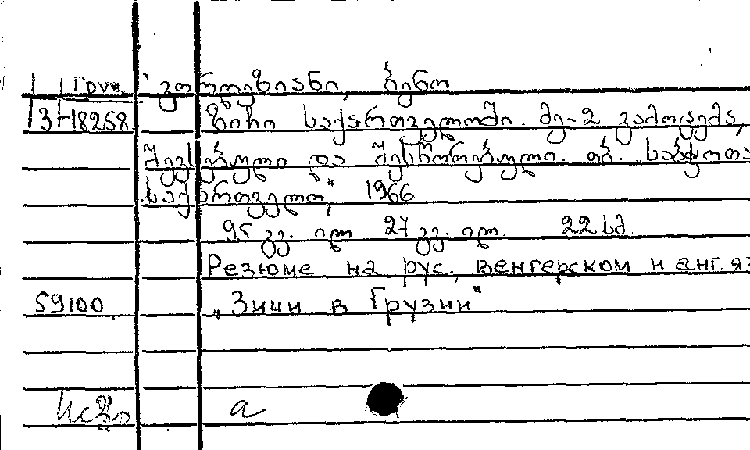 Груз. გორდეზიანი, ბენო
13-18258 ზიჩი საქართველოში. მე-2 გამოცემა,
შევსებული და შესწორებული. თბ. საბჭოთა
საქართველო", 1966
95 გვ. ილ 27 გვ. ილ. 22 სმ.
Резюме на рус., венгерском и англ. яз
59100 „Зичи в Грузии"
а